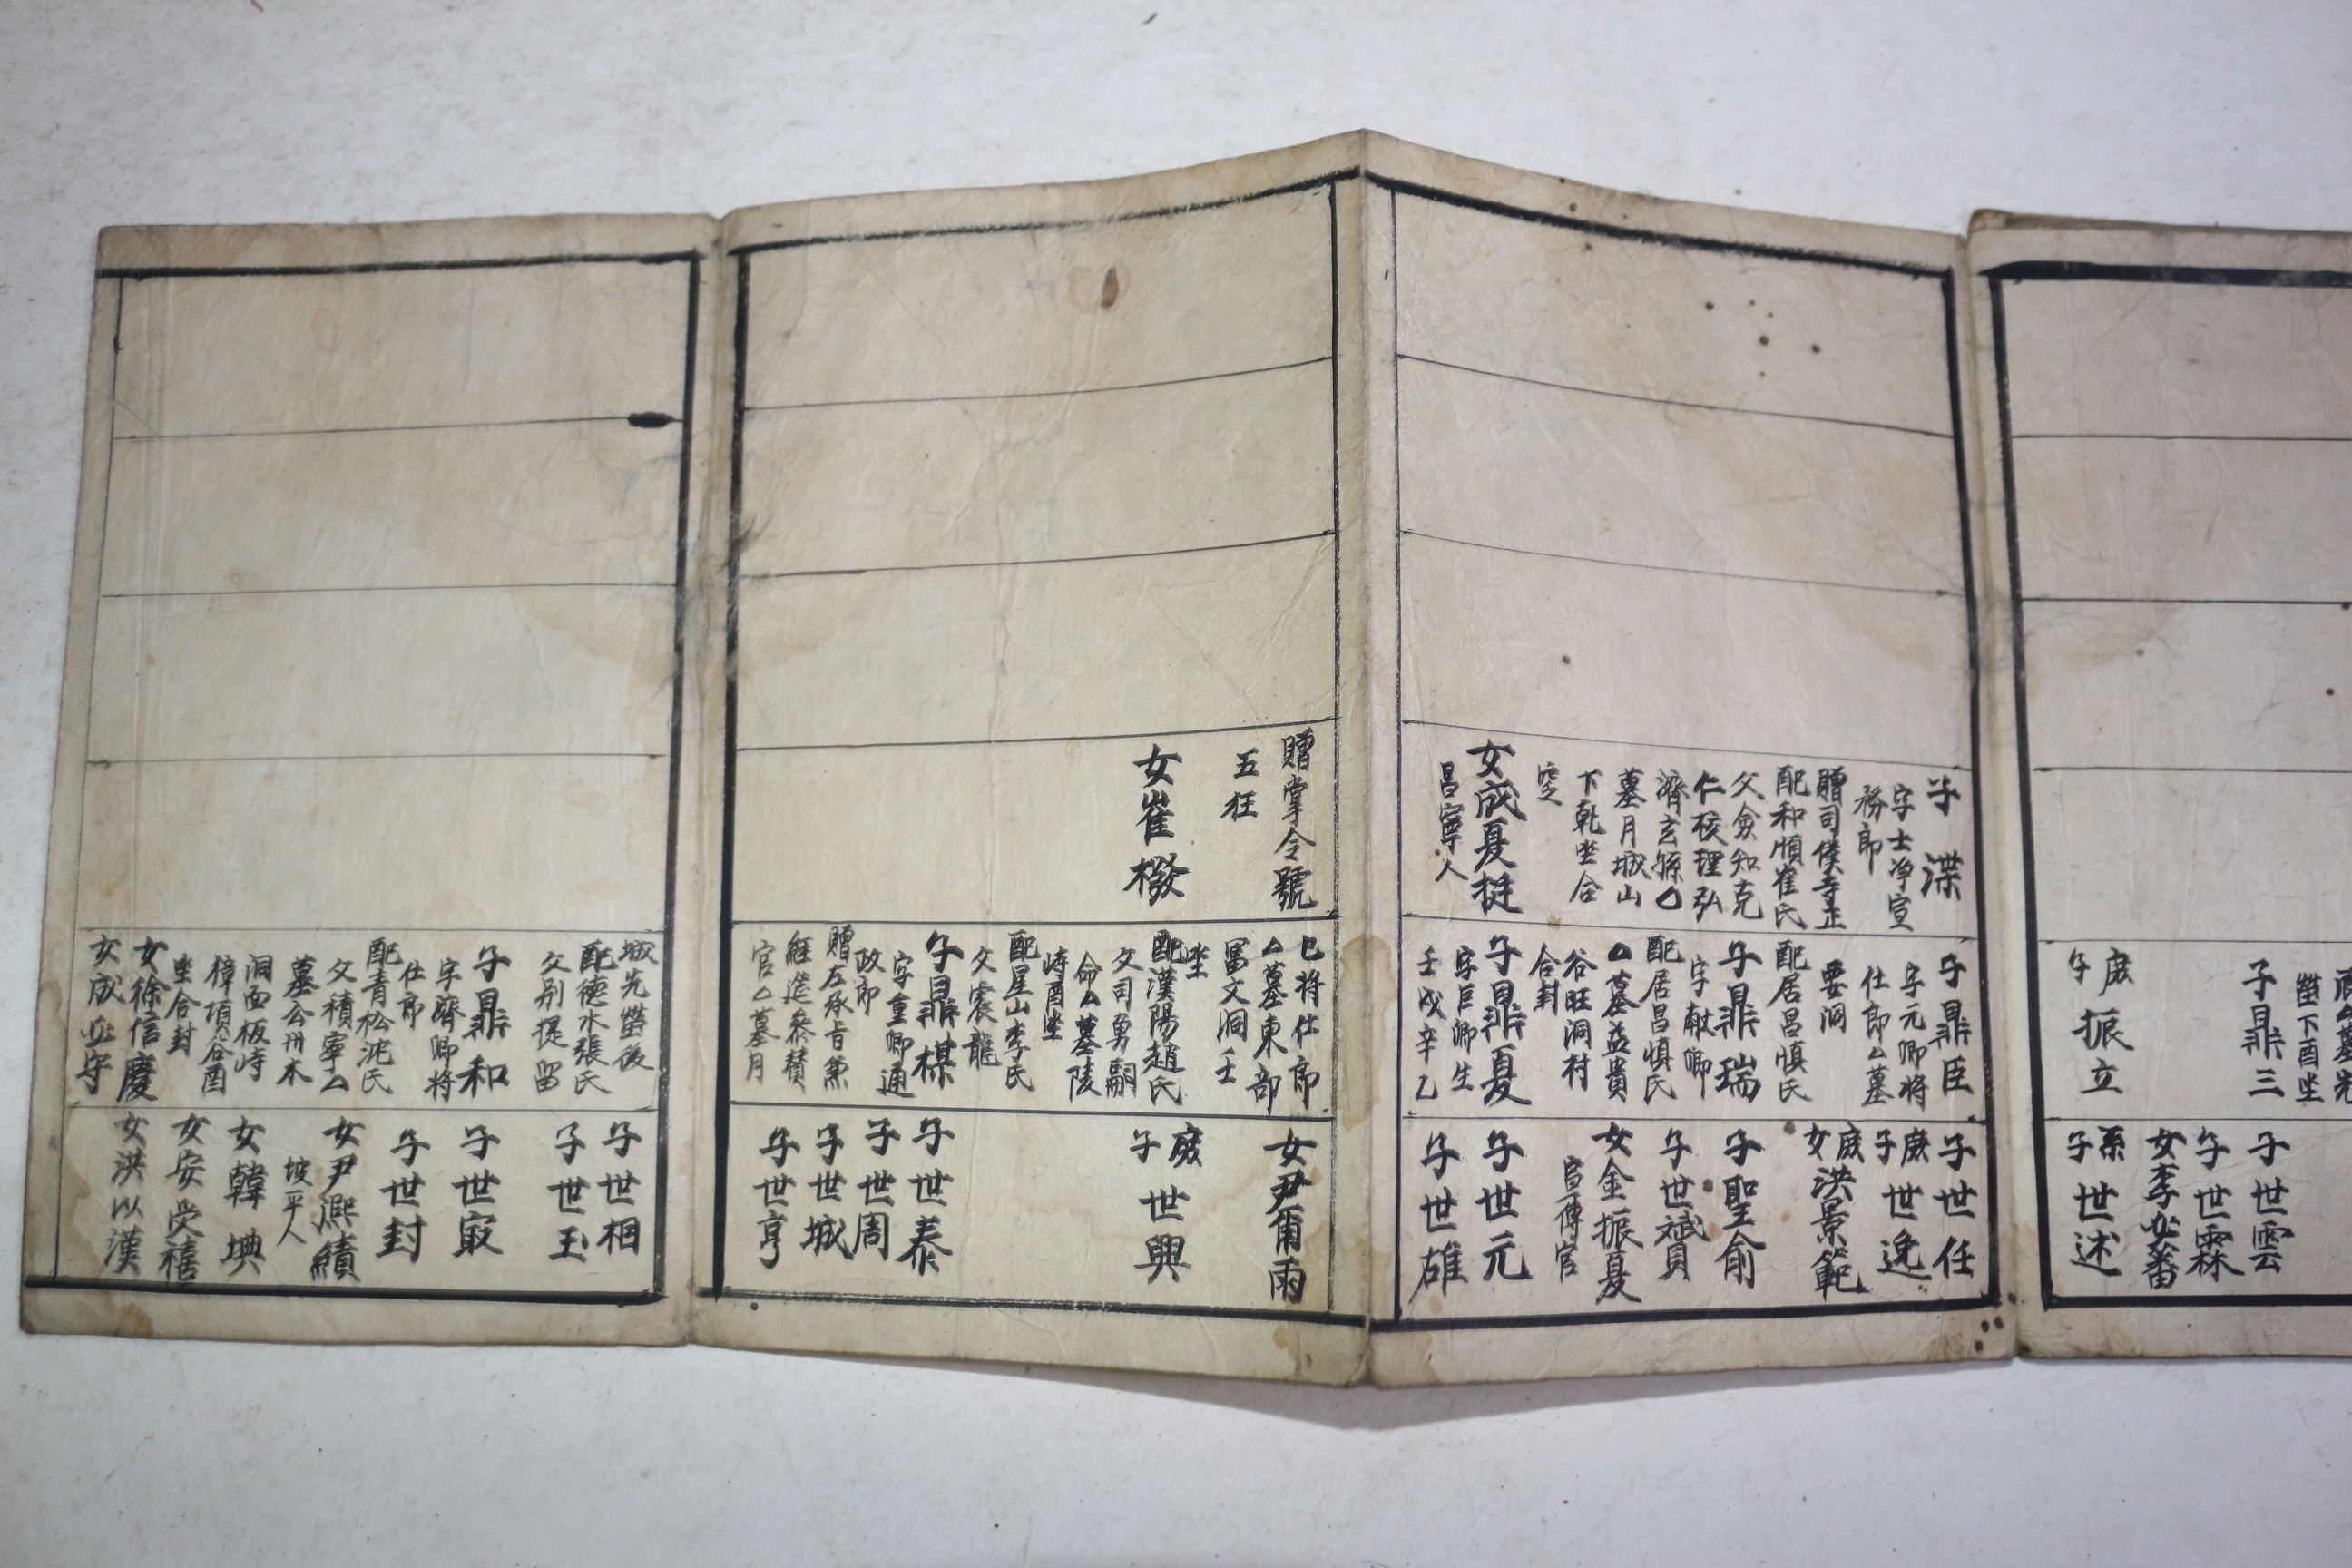 庶子 振立
子鼎三
塋下酉坐
子世雲
子世霖
女李必蕃
系子 世述
子 渫
字士净宣
務郎
贈司僕寺正
配和順崔氏
父僉知克
仁校理弘
濟玄孫△
墓月城山
下乾坐合
窆
女成夏挺
昌寧人
子鼎臣
字元卿將
仕郎△墓
要洞
配居昌慎氏
子鼎瑞
字獻卿
配居昌慎氏
△墓益貴
谷旺洞村
合封
子鼎夏
字巨卿生
壬戌辛乙
子世任
庶子 世逸
庶女 洪景範
子聖俞
子世贇
女金振夏
宣傳官
子世元
子世雄
贈掌令號
五狂
女崔橃
巳將仕郎
△墓東部
冨文洞壬
坐
配漢陽趙氏
父司勇嗣
命△墓陵
峙酉坐
配星山李氏
父震龍
子鼎楳
字重卿通
政郎
贈左承旨兼
經筵參贊
官△墓月
女尹爾雨
庶子 世興
子世泰
子世周
子世城
子世亨
城先塋後
配德水張氏
父別提留
子鼎和
字濟卿將
仕郎
配青松沈氏
父積寧△
墓公州木
洞面板峙
獐項谷酉
坐合封
女徐信慶
女成必守
子世相
子世玉
子世㝡
子世封
女尹熙績
坡平人
女韓㙉
女安受禧
女洪以漢